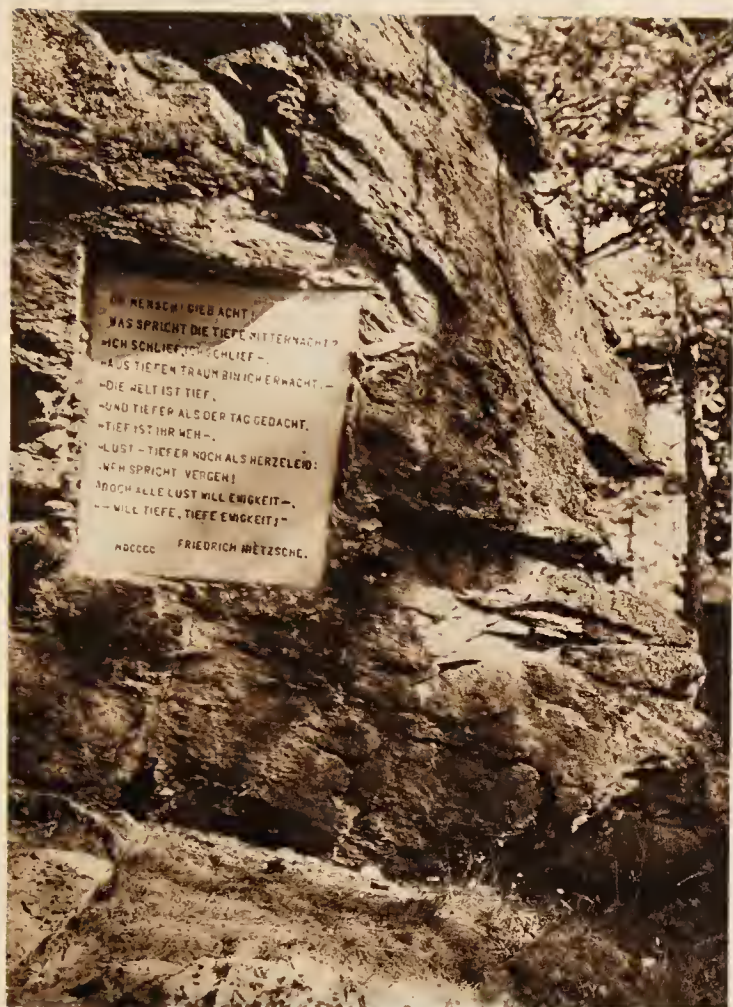 OH MENSCH! GIEB ACHT!
WAS SPRICHT DIE TIEFE MITTERNACHT?
»ICH SCHLIEF, ICH SCHLIEF–,
»AUS TIEFEM TRAUM BIN ICH ERWACHT.–
»DIE WELT IST TIEF,
»UND TIEFER ALS DER TAG GEDACHT.
»TIEF IST IHR WEH–,
»LUST – TIEFER NOCH ALS HERZELEID:
»WEH SPRICHT: VERGEH!
»DOCH ALLE LUST WILL EWIGKEIT–,
»– WILL TIEFE, TIEFE EWIGKEIT!«
MDCCCC FRIEDRICH NIETZSCHE.